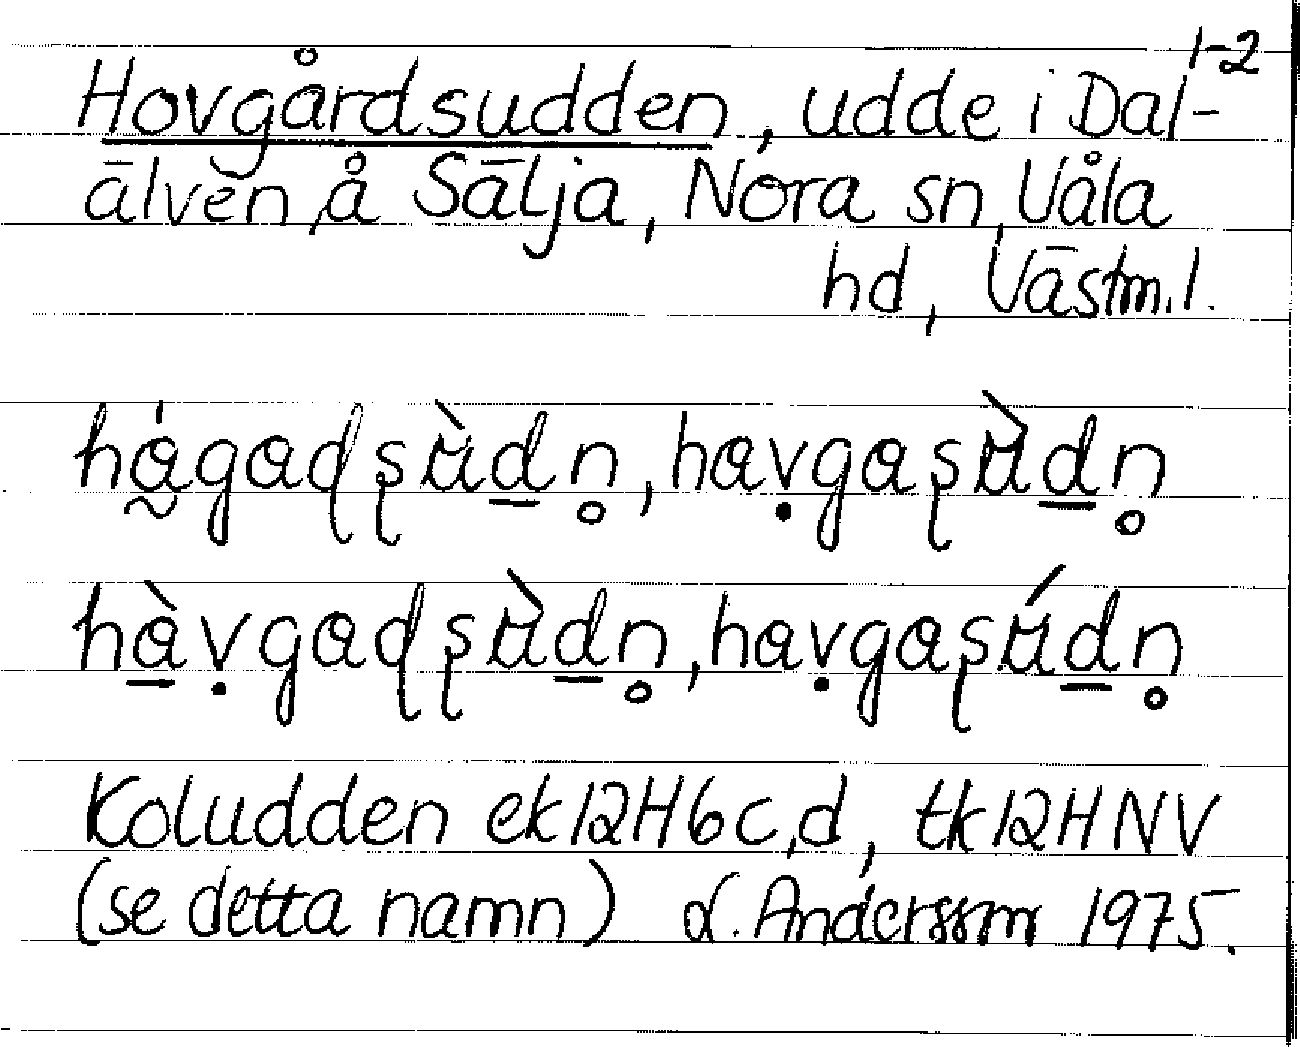 1-2
Hovgårdsudden, udde i Dal-
älven å Sälja, Nora sn, Våla
hd, Västm.l.
hágadsùdn̥, hav̤gasùdn̥
hàv̤gadsùdn̥, hav̤gasúdn̥
Koludden ek12H6c,d, tk12HNV
(se detta namn) L. Andersson 1975.